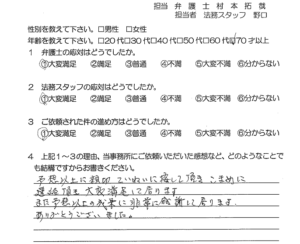 担当 弁護士 村本拓哉
担当者 法務スタッフ 野口
性別を教えて下さい。 □男性 □女性
年齢を教えて下さい。□20代□30代□40代□50代□60代□70才以上
1 弁護士の応対はどうでしたか。
①大変満足 ②満足 ③普通 ④不満 ⑤大変不満 ⑥分からない
2 法務スタッフの応対はどうでしたか。
①大変満足 ②満足 ③普通 ④不満 ⑤大変不満 ⑥分からない
3 ご依頼された件の進め方はどうでしたか。
①大変満足 ②満足 ③普通 ④不満 ⑤大変不満 ⑥分からない
4 上記1～3の理由、当事務所にご依頼いただいた感想など、どのようなことで
も結構ですからお書きください。
予想以上に親切 ていねいに接して頂き こまめに
連絡頂き 大変満足して居ります
また予想以上の成果に非常に感謝して居ります。
ありがとうございました。